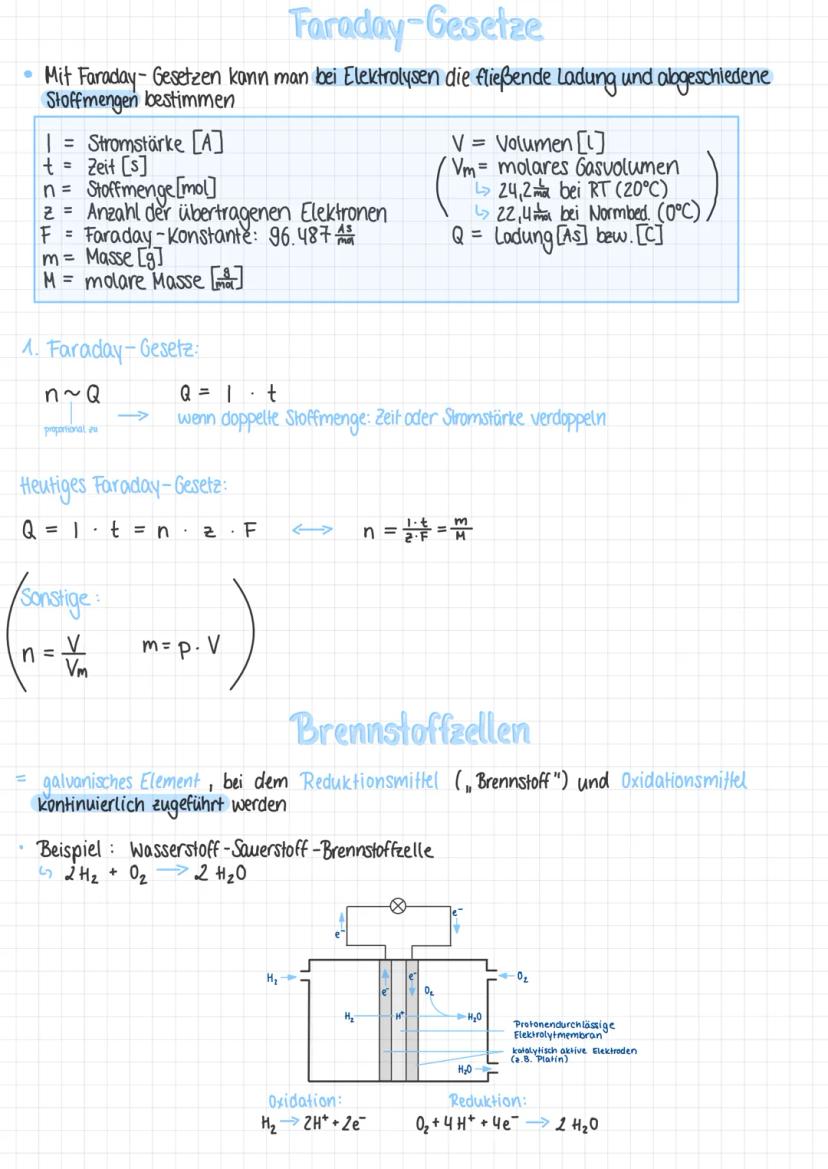 Faraday-Gesetze
• Mit Faraday-Gesetzen kann man bei Elektrolysen die fließende Ladung und abgeschiedene
Stoffmengen bestimmen
I = Stromstärke [A]
t = Zeit [s]
n = Stoffmenge [mol]
z = Anzahl der übertragenen Elektronen
F = Faraday-Konstante: 96.487 As/mol
m = Masse [g]
M = molare Masse [g/mol]
V = Volumen [l]
(Vm = molares Gasvolumen
↳ 24,2 L/mol bei RT (20°C)
↳ 22,4 L/mol bei Normbed. (0°C))
Q = Ladung [As] bzw. [C]
1. Faraday-Gesetz:
n ~ Q → Q = I · t
proportional zu
wenn doppelte Stoffmenge: Zeit oder Stromstärke verdoppeln
Heutiges Faraday-Gesetz:
Q = I · t = n · z · F ⟷ n = I·t/z·F = m/M
(Sonstige:
n = V/Vm m = p · V)
Brennstoffzellen
= galvanisches Element, bei dem Reduktionsmittel („Brennstoff") und Oxidationsmittel
kontinuierlich zugeführt werden
• Beispiel: Wasserstoff-Sauerstoff-Brennstoffzelle
↳ 2H₂ + O₂ → 2 H₂O
e⁻
e⁻
H₂ →
← O₂
e⁻
e⁻
O₂
H₂
H⁺
→ H₂O
Protonendurchlässige
Elektrolytmembran
katalytisch aktive Elektroden
(z.B. Platin)
H₂O →
Oxidation:
H₂ → 2H⁺ + 2e⁻
Reduktion:
O₂ + 4H⁺ + 4e⁻ → 2 H₂O